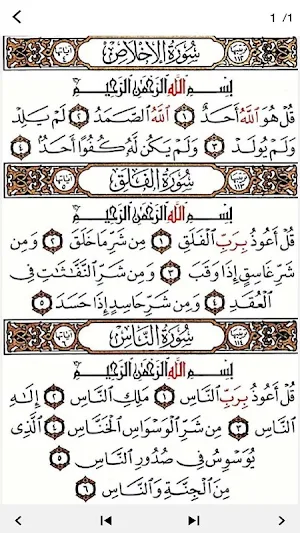 1/1
سُورَةُ الإِخْلَاصِ
بِسْمِ اللَّهِ الرَّحْمَٰنِ الرَّحِيمِ
قُلْ هُوَ اللَّهُ أَحَدٌ ١ اللَّهُ الصَّمَدُ ٢ لَمْ يَلِدْ
وَلَمْ يُولَدْ ٣ وَلَمْ يَكُن لَّهُ كُفُوًا أَحَدٌ ٤
سُورَةُ الفَلَقِ
بِسْمِ اللَّهِ الرَّحْمَٰنِ الرَّحِيمِ
قُلْ أَعُوذُ بِرَبِّ الْفَلَقِ ١ مِن شَرِّ مَا خَلَقَ ٢ وَمِن
شَرِّ غَاسِقٍ إِذَا وَقَبَ ٣ وَمِن شَرِّ النَّفَّاثَاتِ فِي
الْعُقَدِ ٤ وَمِن شَرِّ حَاسِدٍ إِذَا حَسَدَ ٥
سُورَةُ النَّاسِ
بِسْمِ اللَّهِ الرَّحْمَٰنِ الرَّحِيمِ
قُلْ أَعُوذُ بِرَبِّ النَّاسِ ١ مَلِكِ النَّاسِ ٢ إِلَٰهِ
النَّاسِ ٣ مِن شَرِّ الْوَسْوَاسِ الْخَنَّاسِ ٤ الَّذِي
يُوَسْوِسُ فِي صُدُورِ النَّاسِ ٥
مِنَ الْجِنَّةِ وَالنَّاسِ ٦